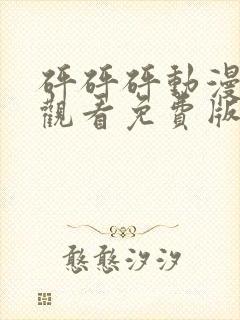 砰砰砰動漫
觀看免費版
憨憨汐汐